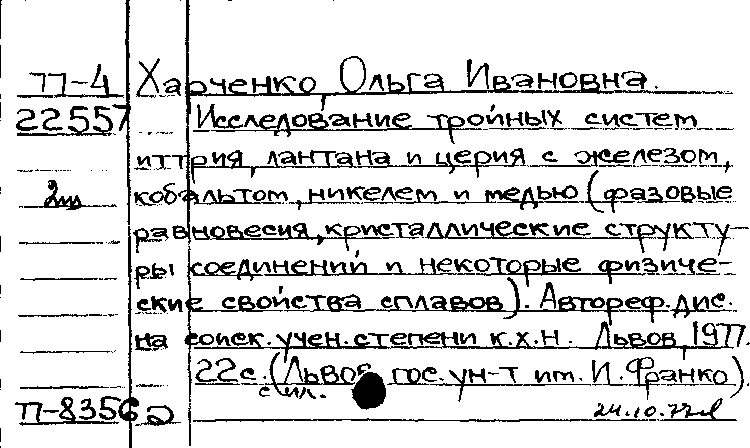 77-4 Харченко, Ольга Ивановна.
22557 Исследование тройных систем
иттрия, лантана и церия с железом,
2ил кобальтом, никелем и медью (фазовые
равновесия, кристаллические структу-
ры соединений и некоторые физиче-
ские свойства сплавов). Автореф. дис.
на соиск. учен. степени к.х.н. Львов, 1977.
22с. (Львов. гос. ун-т им. И. Франко).
с ил.
П-8356